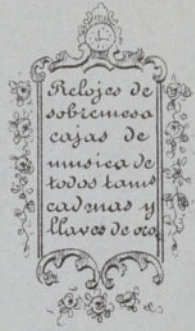 Relojes de
sobremesa
cajas de
musica de
todos tams
cadenas y
llaves de oro